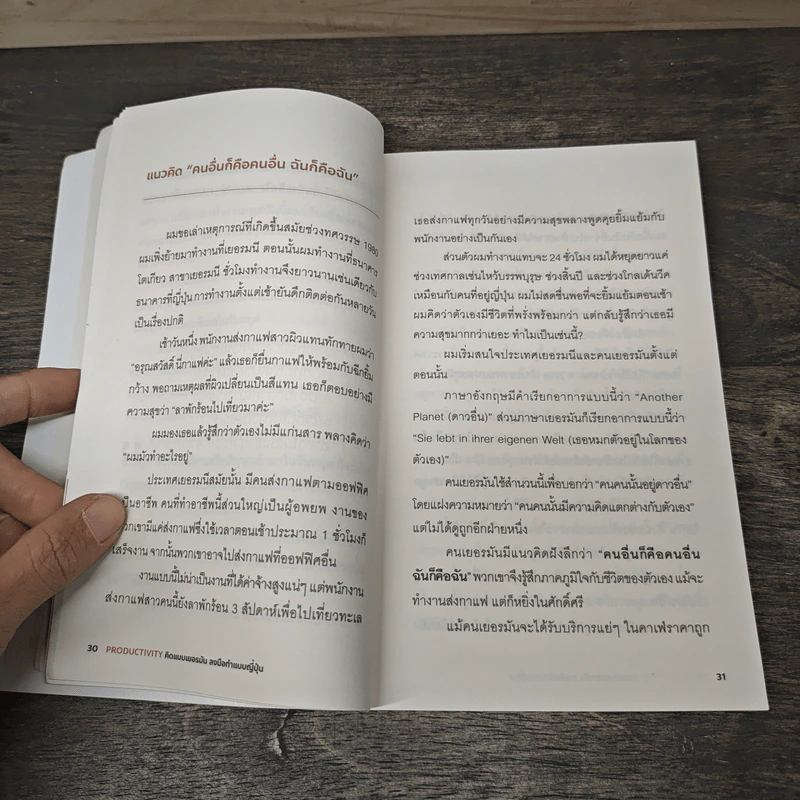 แนวคิด “คนอื่นก็คือคนอื่น ฉันก็คือฉัน”
ผมขอเล่าเหตุการณ์ที่เกิดขึ้นสมัยช่วงทศวรรษ 1980
ผมเพิ่งย้ายมาทำงานที่เยอรมนี ตอนนั้นผมทำงานที่ธนาคาร
โตเกียว สาขาเยอรมนี ชั่วโมงทำงานจึงยาวนานเช่นเดียวกับ
ธนาคารที่ญี่ปุ่น การทำงานตั้งแต่เช้ายันดึกติดต่อกันหลายวัน
เป็นเรื่องปกติ
เช้าวันหนึ่ง พนักงานส่งกาแฟสาวผิวแทนทักทายผมว่า
“อรุณสวัสดิ์ นี่กาแฟค่ะ” แล้วเธอก็ยื่นกาแฟให้พร้อมกับฉีกยิ้ม
กว้าง พอถามเหตุผลที่ผิวเปลี่ยนเป็นสีแทน เธอก็ตอบอย่างมี
ความสุขว่า “ลาพักร้อนไปเที่ยวมาค่ะ”
ผมมองเธอแล้วรู้สึกว่าตัวเองไม่มีแก่นสาร พลางคิดว่า
“ผมมัวทำอะไรอยู่”
ประเทศเยอรมนีสมัยนั้น มีคนส่งกาแฟตามออฟฟิศ
เป็นอาชีพ คนที่ทำอาชีพนี้ส่วนใหญ่เป็นผู้อพยพ งานของ
พวกเขามีแค่ส่งกาแฟซึ่งใช้เวลาตอนเช้าประมาณ 1 ชั่วโมงก็
เสร็จงาน จากนั้นพวกเขาอาจไปส่งกาแฟที่ออฟฟิศอื่น
งานแบบนี้ไม่น่าเป็นงานที่ได้ค่าจ้างสูงแน่ๆ แต่พนักงาน
ส่งกาแฟสาวคนนี้ยังลาพักร้อน 3 สัปดาห์เพื่อไปเที่ยวทะเล
30 PRODUCTIVITY คิดแบบเยอรมัน ลงมือทำแบบญี่ปุ่น
เธอส่งกาแฟทุกวันอย่างมีความสุขพลางพูดคุยยิ้มแย้มกับ
พนักงานอย่างเป็นกันเอง
ส่วนตัวผมทำงานแทบจะ 24 ชั่วโมง ผมได้หยุดยาวแค่
ช่วงเทศกาลเช่นไหว้บรรพบุรุษ ช่วงสิ้นปี และช่วงโกลเด้นวีค
เหมือนกับคนที่อยู่ญี่ปุ่น ผมไม่สดชื่นพอที่จะยิ้มแย้มตอนเช้า
ผมคิดว่าตัวเองมีชีวิตที่พรั่งพร้อมกว่า แต่กลับรู้สึกว่าเธอมี
ความสุขมากกว่าเยอะ ทำไมเป็นเช่นนี้?
ผมเริ่มสนใจประเทศเยอรมนีและคนเยอรมันตั้งแต่
ตอนนั้น
ภาษาอังกฤษมีคำเรียกอาการแบบนี้ว่า “Another
Planet (ดาวอื่น)” ส่วนภาษาเยอรมันก็เรียกอาการแบบนี้ว่า
“Sie lebt in ihrer eigenen Welt (เธอหมกตัวอยู่ในโลกของ
ตัวเอง)”
คนเยอรมันใช้สำนวนนี้เพื่อบอกว่า “คนคนนั้นอยู่ดาวอื่น”
โดยแฝงความหมายว่า “คนคนนั้นมีความคิดแตกต่างกับตัวเอง”
แต่ไม่ได้ดูถูกอีกฝ่ายหนึ่ง
คนเยอรมันมีแนวคิดฝังลึกว่า “คนอื่นก็คือคนอื่น
ฉันก็คือฉัน” พวกเขาจึงรู้สึกภาคภูมิใจกับชีวิตของตัวเอง แม้จะ
ทำงานส่งกาแฟ แต่ก็หยิ่งในศักดิ์ศรี
แม้คนเยอรมันจะได้รับบริการแย่ๆ ในคาเฟ่ราคาถูก
31